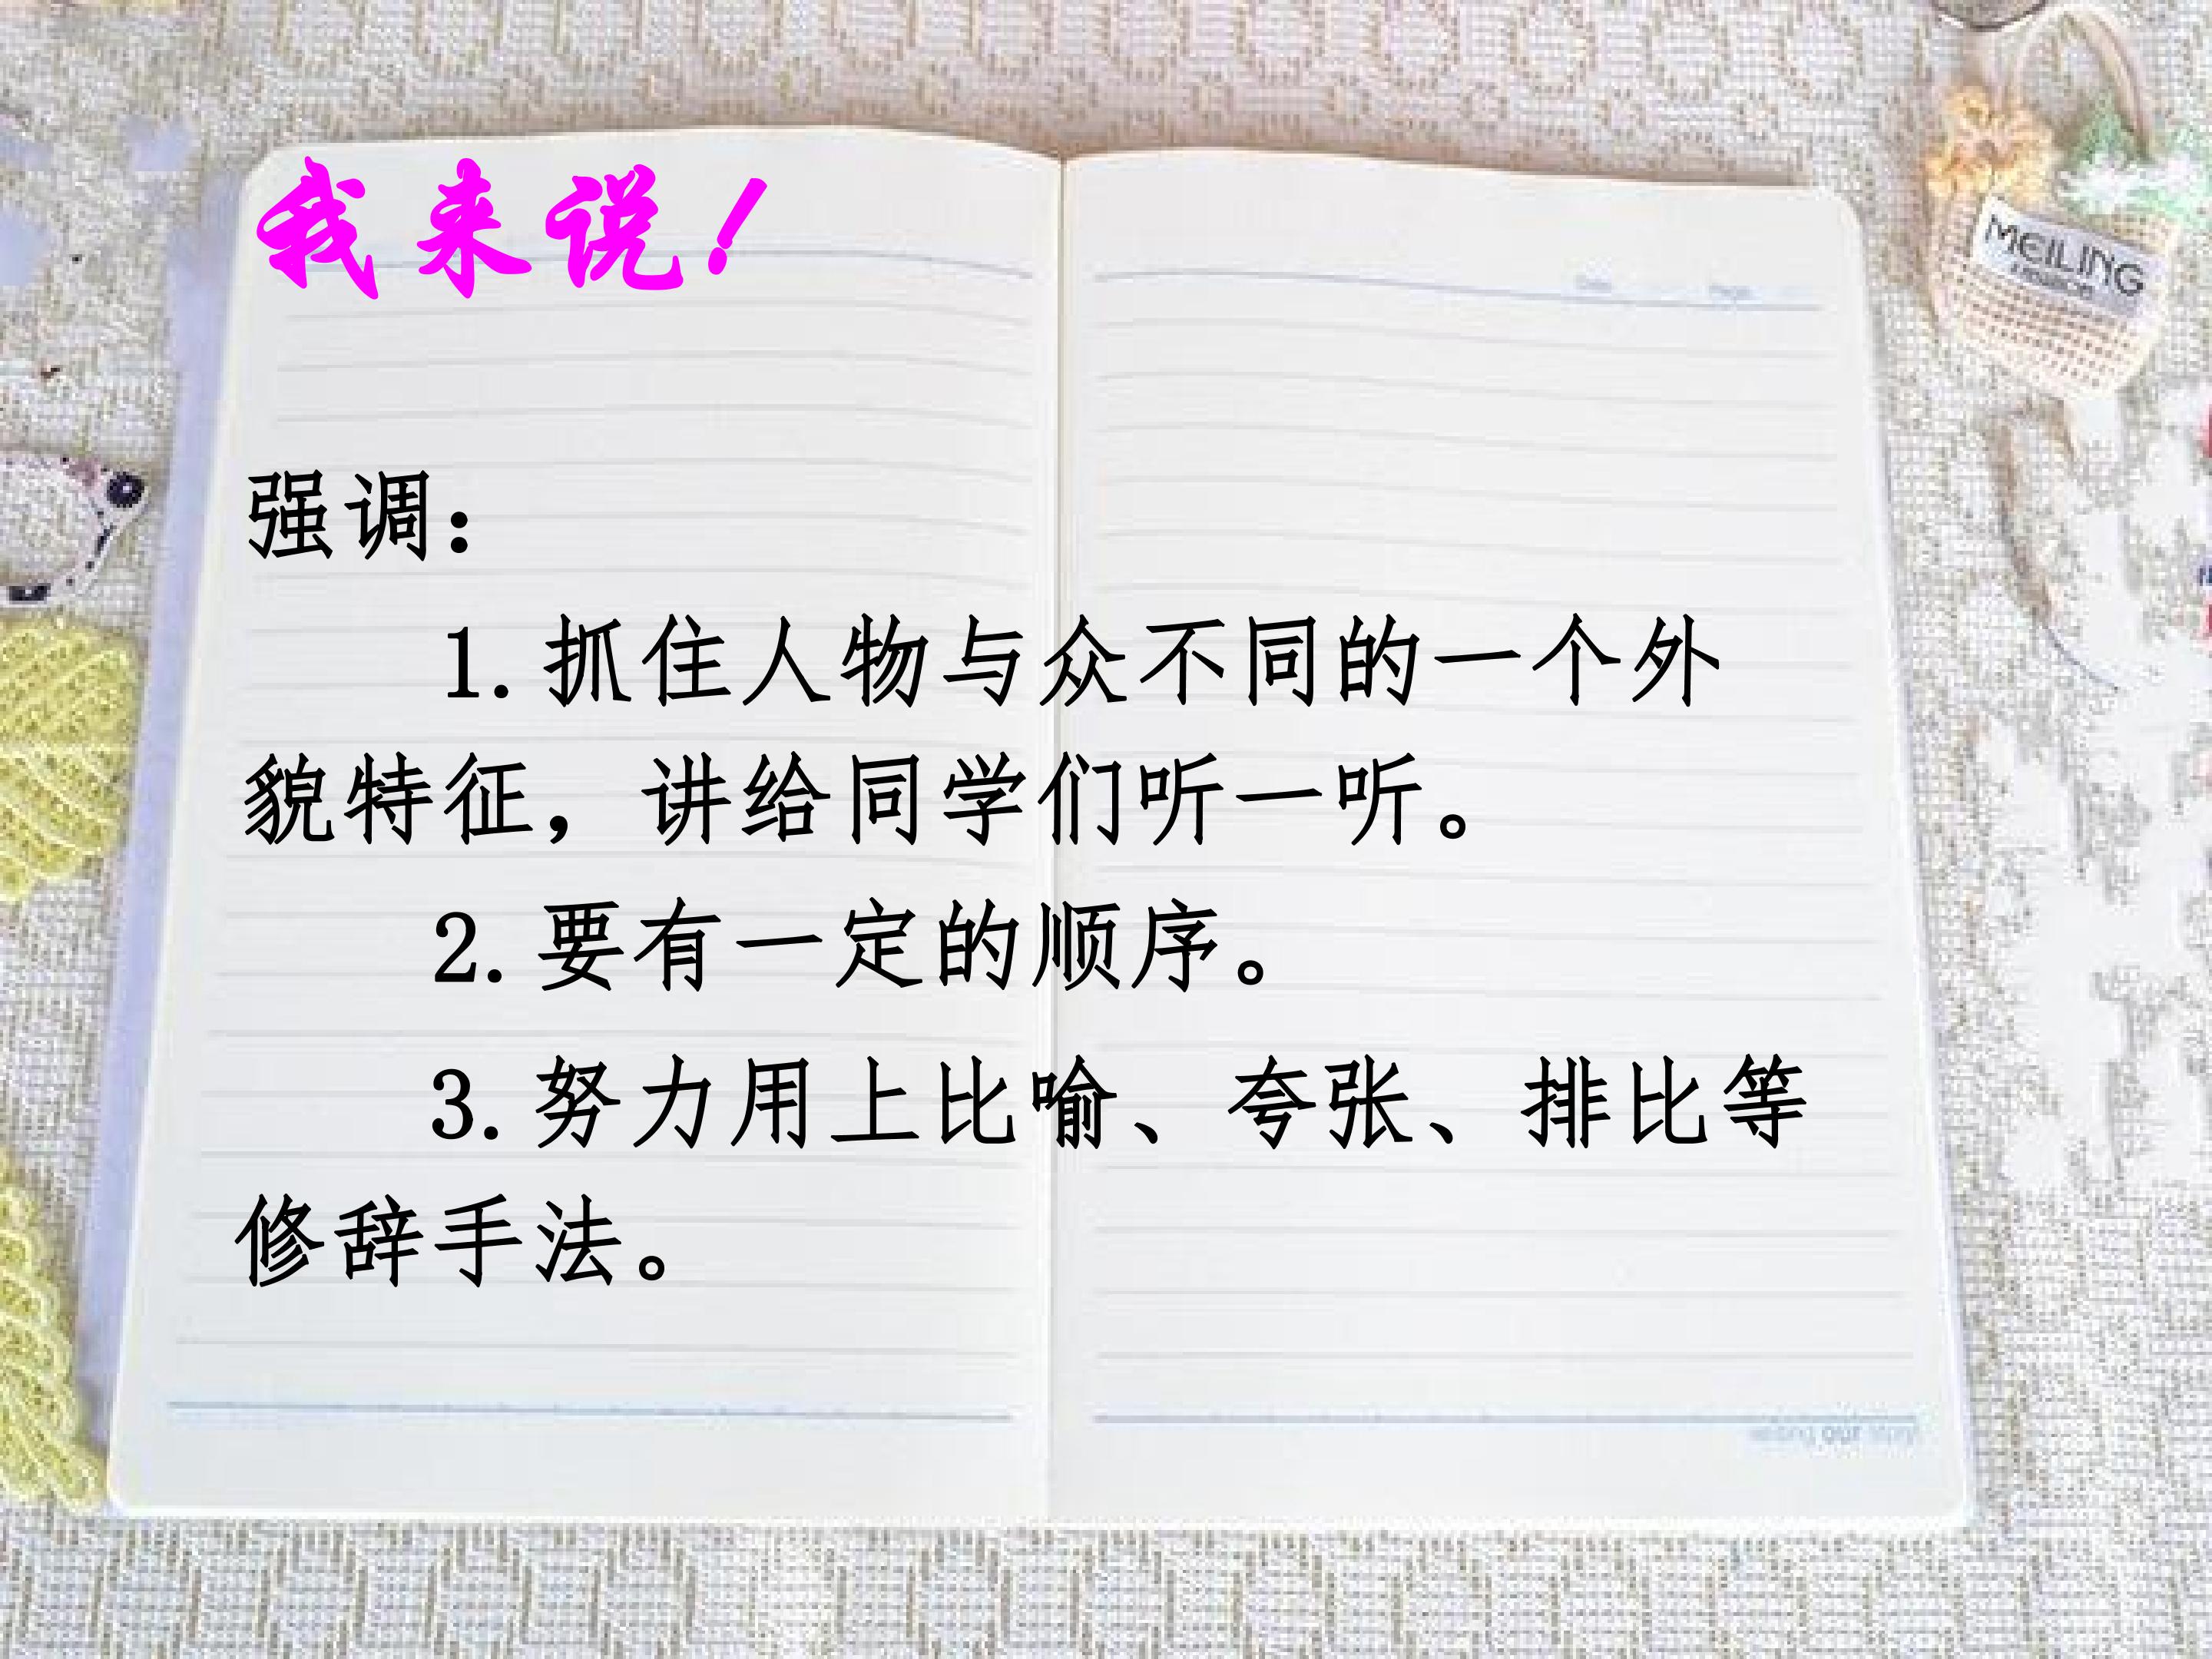 我来说！
MEILING
强调：
1.抓住人物与众不同的一个外
貌特征，讲给同学们听一听。
2.要有一定的顺序。
3.努力用上比喻、夸张、排比等
修辞手法。
our